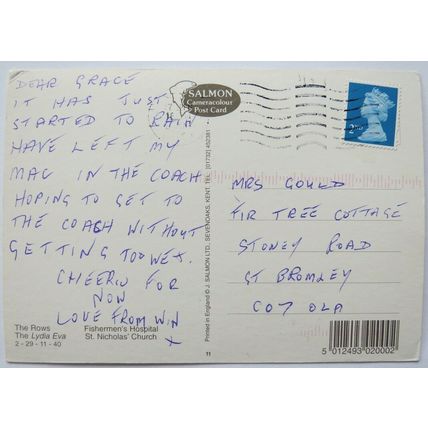 DEAR GRACE
IT HAS JUST
STARTED TO RAIN
HAVE LEFT MY
MAC IN THE COACH
HOPING TO GET TO
THE COACH WITHOUT
GETTING TOO WET.
CHEERIO FOR
NOW
LOVE FROM WIN
X
The Rows
The Lydia Eva
2 - 29 - 11 - 40
Fishermen's Hospital
St. Nicholas' Church
SALMON
Cameracolour
Post Card
Printed in England © J. SALMON LTD., SEVENOAKS, KENT. TEL: (01732) 452381
11
2ND
MRS GOULD
FIR TREE COTTAGE
STONEY ROAD
GT BROMLEY
CO7 OLA
5 012493 020002